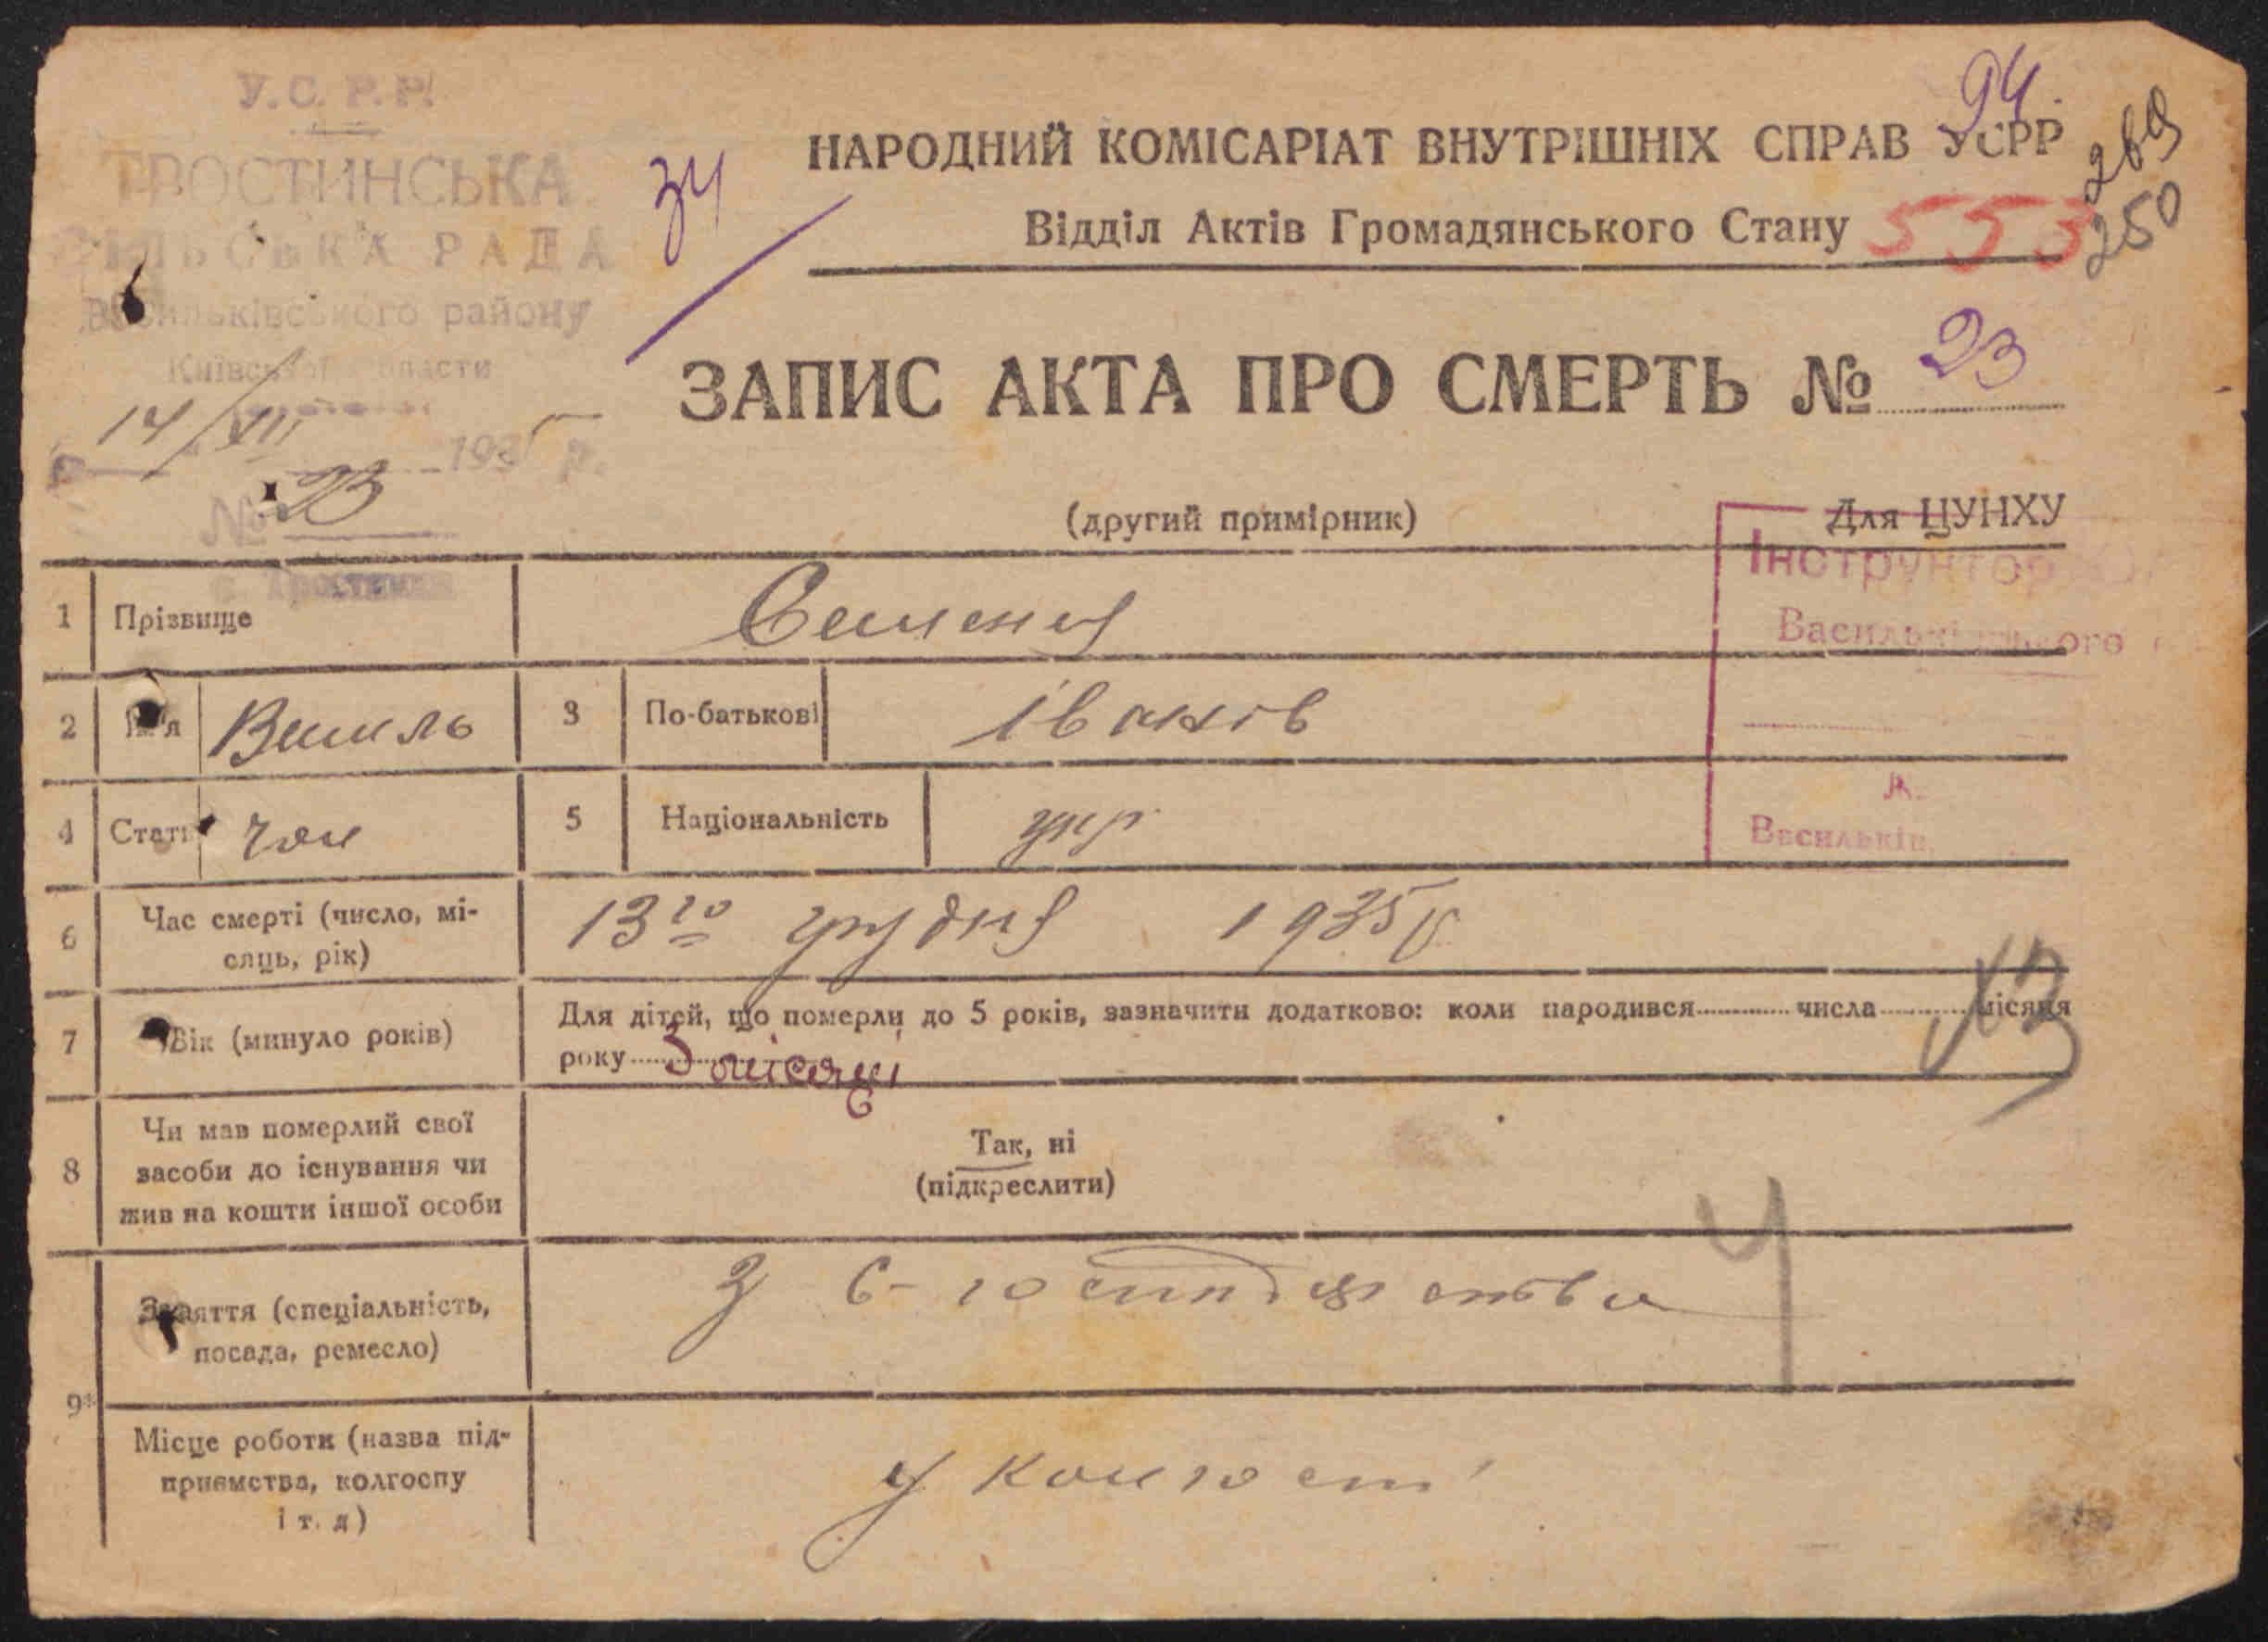 У.С.Р.Р.
ТРОСТИНСЬКА
СІЛЬСЬКА РАДА
Васильківського району
Київської области
14/XII 1935 р.
№ 23
с. Тростинка
34
94.
269
250
НАРОДНИЙ КОМІСАРІАТ ВНУТРІШНІХ СПРАВ УСРР
Відділ Актів Громадянського Стану
553
ЗАПИС АКТА ПРО СМЕРТЬ № 23
(другий примірник)
Для ЦУНХУ
Інструктор
Васильківського
м.
Васильків
1 Прізвище
2 Ім'я Василь 3 По-батькові Іванів
4 Стать чол 5 Національність укр
6 Час смерті (число, мі-
сяць, рік)
13го грудня 1935 р
7 Вік (минуло років)
Для дітей, що померли до 5 років, зазначити додатково: коли народився числа місяця
року 3 місяці
8 Чи мав померлий свої
засоби до існування чи
жив на кошти іншої особи
Так, ні
(підкреслити)
9* Заняття (спеціальність,
посада, ремесло)
З с-господарства
4
Місце роботи (назва під-
приємства, колгоспу
і т. д)
у колгоспі